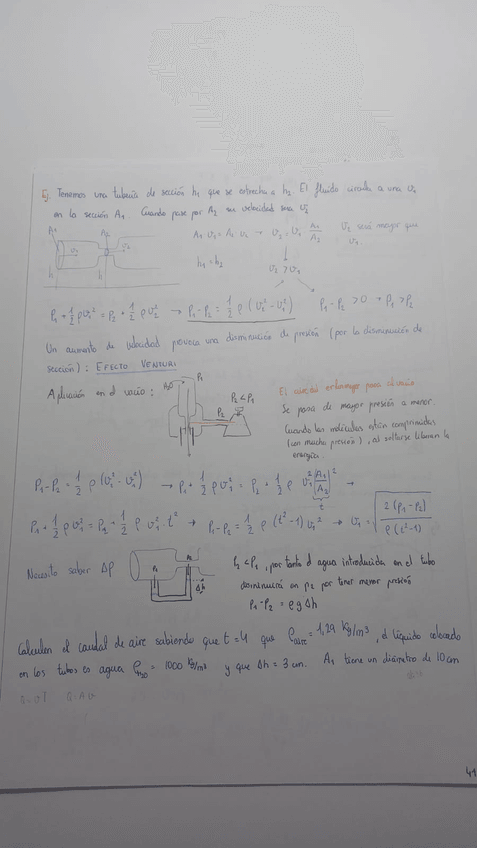 Ej. Tenemos una tubería de sección h₁ que se estrecha a h₂. El fluido circula a una v₁
en la sección A₁. Cuando pase por A₂ su velocidad será v₂
A₁ A₂ v₁ v₂
A₁ v₁ = A₂ v₂ → v₂ = v₁ · A₁/A₂ v₂ será mayor que v₁.
h₁ = h₂ v₂ > v₁
P₁ + 1/2 ρ v₁² = P₂ + 1/2 ρ v₂² → P₁ - P₂ = 1/2 ρ (v₂² - v₁²) P₁ - P₂ > 0 → P₁ > P₂
Un aumento de velocidad provoca una disminución de presión (por la disminución de
sección): EFECTO VENTURI
Aplicación en el vacío: H₂O P₁ P₂ P₂ < P₁
Se pasa de mayor presión a menor.
Cuando las moléculas están comprimidas
(con mucha presión), al soltarse liberan la
energía.
P₁ - P₂ = 1/2 ρ (v₂² - v₁²) → P₁ + 1/2 ρ v₁² = P₂ + 1/2 ρ v₁² (A₁/A₂)² →
t
P₁ + 1/2 ρ v₁² = P₂ + 1/2 ρ · v₁² · t² → P₁ - P₂ = 1/2 ρ (t² - 1) v₁² → v₁ = √(2 (P₁ - P₂) / ρ (t² - 1))
Necesito saber ΔP P₁ A₂ Δh
P₂ < P₁, por tanto el agua introducida en el tubo
disminuirá en P₂ por tener menor presión
P₁ - P₂ = ρ g Δh
Calculen el caudal de aire sabiendo que t = 4 que ρaire = 1,29 kg/m³, el líquido colocado
en los tubos es agua ρH₂O = 1000 kg/m³ y que Δh = 3 cm. A₁ tiene un diámetro de 10 cm
41